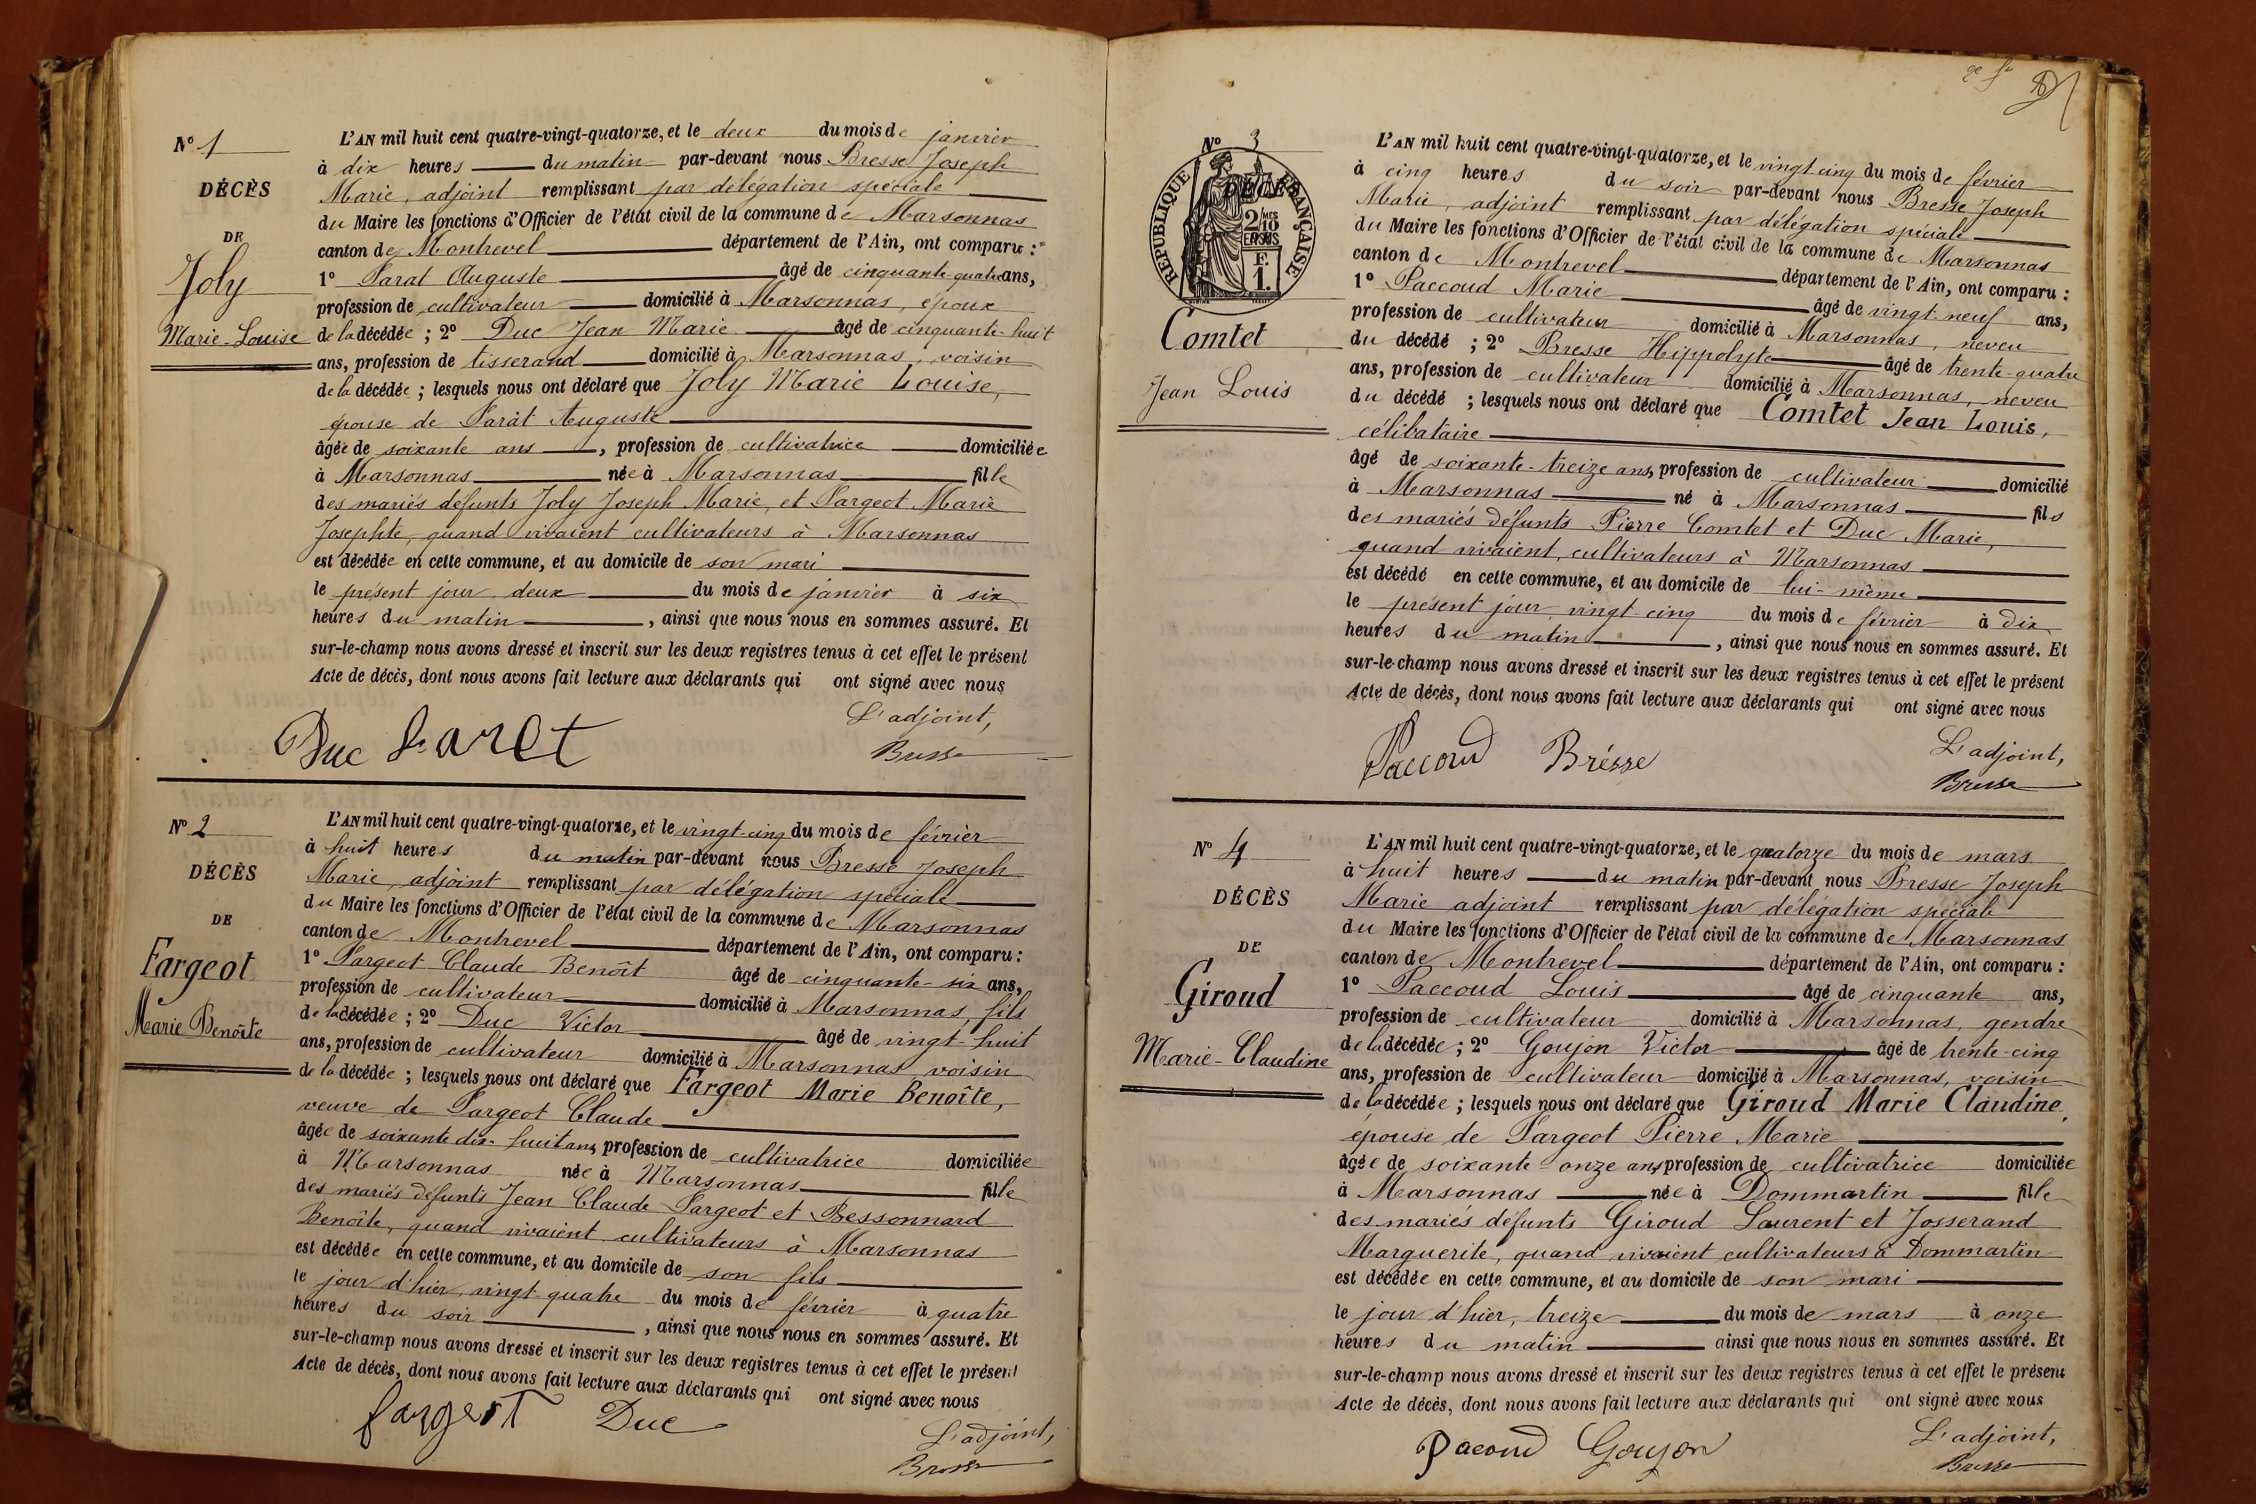 Nº 1
DÉCÈS
DE
Joly
Marie-Louise
L'AN mil huit cent quatre-vingt-quatorze, et le deux du mois de janvier
à dix heures du matin par-devant nous Bresse Joseph
Marie, adjoint remplissant par délégation spéciale
du Maire les fonctions d'Officier de l'état civil de la commune de Marsonnas
canton de Montrevel département de l'Ain, ont comparu :
1º Farat Auguste âgé de cinquante-quatre ans,
profession de cultivateur domicilié à Marsonnas, époux
de la décédée ; 2º Duc Jean Marie âgé de cinquante-huit
ans, profession de tisserand domicilié à Marsonnas, voisin
de la décédée ; lesquels nous ont déclaré que Joly Marie Louise,
épouse de Farat Auguste
âgée de soixante ans, profession de cultivatrice domiciliée
à Marsonnas née à Marsonnas fille
des mariés défunts Joly Joseph Marie, et Fargeot Marie
Josephte, quand vivaient cultivateurs à Marsonnas
est décédée en cette commune, et au domicile de son mari
le présent jour deux du mois de janvier à six
heures du matin, ainsi que nous nous en sommes assuré. Et
sur-le-champ nous avons dressé et inscrit sur les deux registres tenus à cet effet le présent
Acte de décès, dont nous avons fait lecture aux déclarants qui ont signé avec nous
L'adjoint,
Duc Farat Bresse
Nº 2
DÉCÈS
DE
Fargeot
Marie Benoîte
L'AN mil huit cent quatre-vingt-quatorze, et le vingt-cinq du mois de février
à huit heures du matin par-devant nous Bresse Joseph
Marie, adjoint remplissant par délégation spéciale
du Maire les fonctions d'Officier de l'état civil de la commune de Marsonnas
canton de Montrevel département de l'Ain, ont comparu :
1º Fargeot Claude Benoît âgé de cinquante-six ans,
profession de cultivateur domicilié à Marsonnas, fils
de la décédée ; 2º Duc Victor âgé de vingt-huit
ans, profession de cultivateur domicilié à Marsonnas, voisin
de la décédée ; lesquels nous ont déclaré que Fargeot Marie Benoîte,
veuve de Fargeot Claude
âgée de soixante dix-huit ans, profession de cultivatrice domiciliée
à Marsonnas née à Marsonnas fille
des mariés défunts Jean Claude Fargeot et Bessonnard
Benoîte, quand vivaient cultivateurs à Marsonnas
est décédée en cette commune, et au domicile de son fils
le jour d'hier, vingt quatre du mois de février à quatre
heures du soir, ainsi que nous nous en sommes assuré. Et
sur-le-champ nous avons dressé et inscrit sur les deux registres tenus à cet effet le présent
Acte de décès, dont nous avons fait lecture aux déclarants qui ont signé avec nous
fargeot Duc L'adjoint,
Bresse
Nº 3
DÉCÈS
RÉPUBLIQUE FRANÇAISE
2/10 EN SUS
F. 1.
Comtet
Jean Louis
L'AN mil huit cent quatre-vingt-quatorze, et le vingt cinq du mois de février
à cinq heures du soir par-devant nous Bresse Joseph
Marie, adjoint remplissant par délégation spéciale
du Maire les fonctions d'Officier de l'état civil de la commune de Marsonnas
canton de Montrevel département de l'Ain, ont comparu :
1º Paccoud Marie âgé de vingt-neuf ans,
profession de cultivateur domicilié à Marsonnas, neveu
du décédé ; 2º Bresse Hippolyte âgé de trente-quatre
ans, profession de cultivateur domicilié à Marsonnas, neveu
du décédé ; lesquels nous ont déclaré que Comtet Jean Louis,
célibataire
âgé de soixante-treize ans, profession de cultivateur domicilié
à Marsonnas né à Marsonnas fils
des mariés défunts Pierre Comtet et Duc Marie,
quand vivaient, cultivateurs à Marsonnas
est décédé en cette commune, et au domicile de lui-même
le présent jour vingt cinq du mois de février à dix
heures du matin, ainsi que nous nous en sommes assuré. Et
sur-le-champ nous avons dressé et inscrit sur les deux registres tenus à cet effet le présent
Acte de décès, dont nous avons fait lecture aux déclarants qui ont signé avec nous
Paccoud Brésse L'adjoint,
Bresse
Nº 4
DÉCÈS
DE
Giroud
Marie-Claudine
L'AN mil huit cent quatre-vingt-quatorze, et le quatorze du mois de mars
à huit heures du matin par-devant nous Bresse Joseph
Marie adjoint remplissant par délégation spéciale
du Maire les fonctions d'Officier de l'état civil de la commune de Marsonnas
canton de Montrevel département de l'Ain, ont comparu :
1º Paccoud Louis âgé de cinquante ans,
profession de cultivateur domicilié à Marsonnas, gendre
de la décédée ; 2º Goujon Victor âgé de trente-cinq
ans, profession de cultivateur domicilié à Marsonnas, voisin
de la décédée ; lesquels nous ont déclaré que Giroud Marie Claudine,
épouse de Fargeot Pierre Marie
âgée de soixante-onze ans, profession de cultivatrice domiciliée
à Marsonnas née à Dommartin fille
des mariés défunts Giroud Laurent et Josserand
Marguerite, quand vivaient cultivateurs à Dommartin
est décédée en cette commune, et au domicile de son mari
le jour d'hier, treize du mois de mars à onze
heures du matin ainsi que nous nous en sommes assuré. Et
sur-le-champ nous avons dressé et inscrit sur les deux registres tenus à cet effet le présent
Acte de décès, dont nous avons fait lecture aux déclarants qui ont signé avec nous
Pacoud Goujon L'adjoint,
Bresse